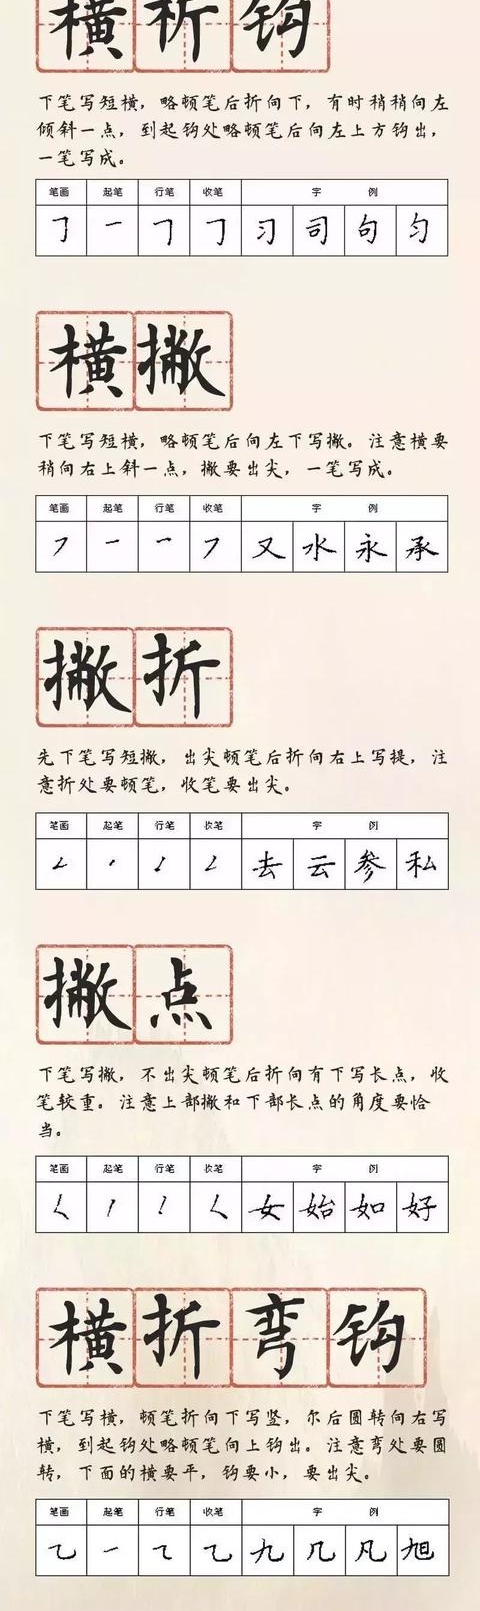 横折钩
下笔写短横，略顿笔后折向下，有时稍稍向左
倾斜一点，到起钩处略顿笔后向左上方钩出，
一笔写成。
笔画 起笔 行笔 收笔 字 例
𠃌 一 𠃌 𠃌 习 司 句 匀
横撇
下笔写短横，略顿笔后向左下写撇。注意横要
稍向右上斜一点，撇要出尖，一笔写成。
笔画 起笔 行笔 收笔 字 例
㇇ 一 ㇖ ㇇ 又 水 永 承
撇折
先下笔写短撇，出尖顿笔后折向右上写提，注
意折处要顿笔，收笔要出尖。
笔画 起笔 行笔 收笔 字 例
去 云 参 私
撇点
下笔写撇，不出尖顿笔后折向有下写长点，收
笔较重。注意上部撇和下部长点的角度要恰
当。
笔画 起笔 行笔 收笔 字 例
女 始 如 好
横折弯钩
下笔写横，顿笔折向下写竖，尔后圆转向右写
横，到起钩处略顿笔向上钩出。注意弯处要圆
转，下面的横要平，钩要小，要出尖。
笔画 起笔 行笔 收笔 字 例
九 几 凡 旭